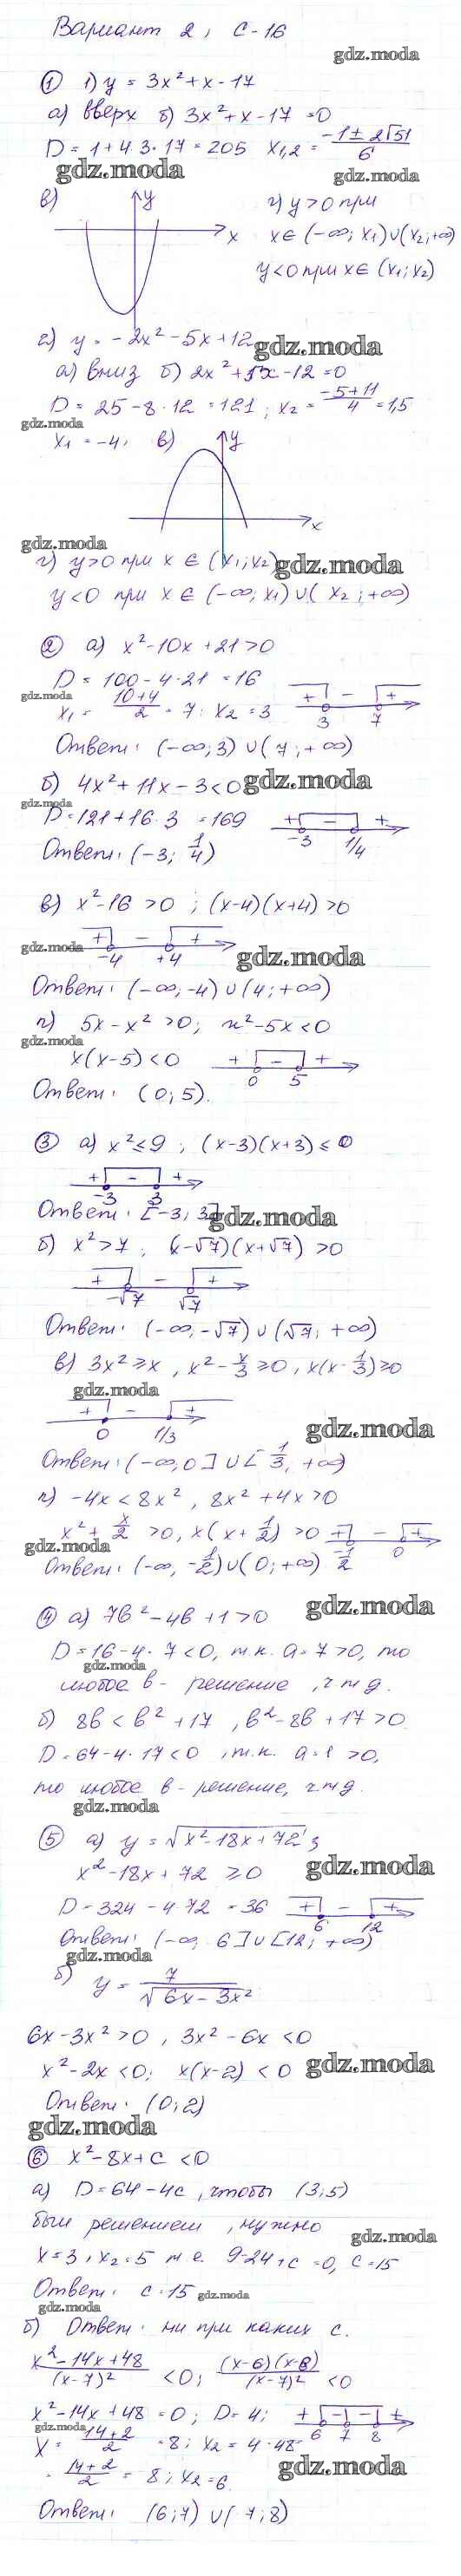 Вариант 2, С-16
gdz.moda
① 1) y = 3x² + x - 17
а) вверх б) 3x² + x - 17 = 0
D = 1 + 4·3·17 = 205 x₁,₂ = (-1 ± 2√51)/6
gdz.moda gdz.moda
в) y г) y > 0 при
x x ∈ (-∞; x₁) ∪ (x₂; +∞)
y < 0 при x ∈ (x₁; x₂)
2) y = -2x² - 5x + 12 gdz.moda
а) вниз б) 2x² + 5x - 12 = 0
D = 25 - 8·12 = 121; x₂ = (-5+11)/4 = 1,5
gdz.moda
x₁ = -4, в) y
x
gdz.moda
г) y > 0 при x ∈ (x₁; x₂) gdz.moda
y < 0 при x ∈ (-∞; x₁) ∪ (x₂; +∞)
② а) x² - 10x + 21 > 0
D = 100 - 4·21 = 16
gdz.moda
x₁ = (10+4)/2 = 7; x₂ = 3 + - + 3 7
Ответ: (-∞; 3) ∪ (7; +∞)
б) 4x² + 11x - 3 < 0 gdz.moda
gdz.moda
D = 121 + 16·3 = 169 + - + -3 1/4
Ответ: (-3; 1/4)
в) x² - 16 > 0; (x-4)(x+4) > 0
gdz.moda + - + -4 +4 gdz.moda
Ответ: (-∞; -4) ∪ (4; +∞)
г) 5x - x² > 0; x² - 5x < 0
gdz.moda
x(x-5) < 0 + - + 0 5
Ответ: (0; 5).
③ а) x² ≤ 9; (x-3)(x+3) ≤ 0
+ - + -3 3
Ответ: [-3; 3] gdz.moda
б) x² > 7; (x-√7)(x+√7) > 0
+ - + -√7 √7
Ответ: (-∞; -√7) ∪ (√7; +∞)
в) 3x² ≥ x, x² - x/3 ≥ 0, x(x - 1/3) ≥ 0
gdz.moda
+ - + 0 1/3 gdz.moda
Ответ: (-∞, 0] ∪ [1/3, +∞)
г) -4x < 8x², 8x² + 4x > 0
x² + x/2 > 0, x(x + 1/2) > 0 + - + -1/2 0
gdz.moda
Ответ: (-∞, -1/2) ∪ (0; +∞)
④ а) 7b² - 4b + 1 > 0 gdz.moda
D = 16 - 4·7 < 0, т.к. a = 7 > 0, то
gdz.moda
любое b - решение, чтд.
б) 8b < b² + 17, b² - 8b + 17 > 0
D = 64 - 4·17 < 0, т.к. a = 1 > 0,
то любое b - решение, чтд.
gdz.moda
⑤ а) y = √(x² - 18x + 72);
x² - 18x + 72 ≥ 0 gdz.moda
D = 324 - 4·72 = 36 + - + 6 12
Ответ: (-∞, 6] ∪ [12; +∞)
gdz.moda
б) y = 7/√(6x - 3x²)
6x - 3x² > 0, 3x² - 6x < 0
x² - 2x < 0; x(x-2) < 0 gdz.moda
Ответ: (0; 2)
gdz.moda
⑥ x² - 8x + c < 0
а) D = 64 - 4c, чтобы (3; 5)
был решением, нужно gdz.moda
x = 3, x₂ = 5 т.е. 9 - 24 + c = 0, c = 15
Ответ: c = 15 gdz.moda
gdz.moda
б) Ответ: ни при каких c.
(x² - 14x + 48)/(x-7)² < 0; (x-6)(x-8)/(x-7)² < 0
x² - 14x + 48 = 0; D = 4; + - - + 6 7 8
gdz.moda
x = (14+2)/2 = 8; x₂ = 4·48
= (14+2)/2 = 8; x₂ = 6 gdz.moda
Ответ: (6; 7) ∪ (7; 8)